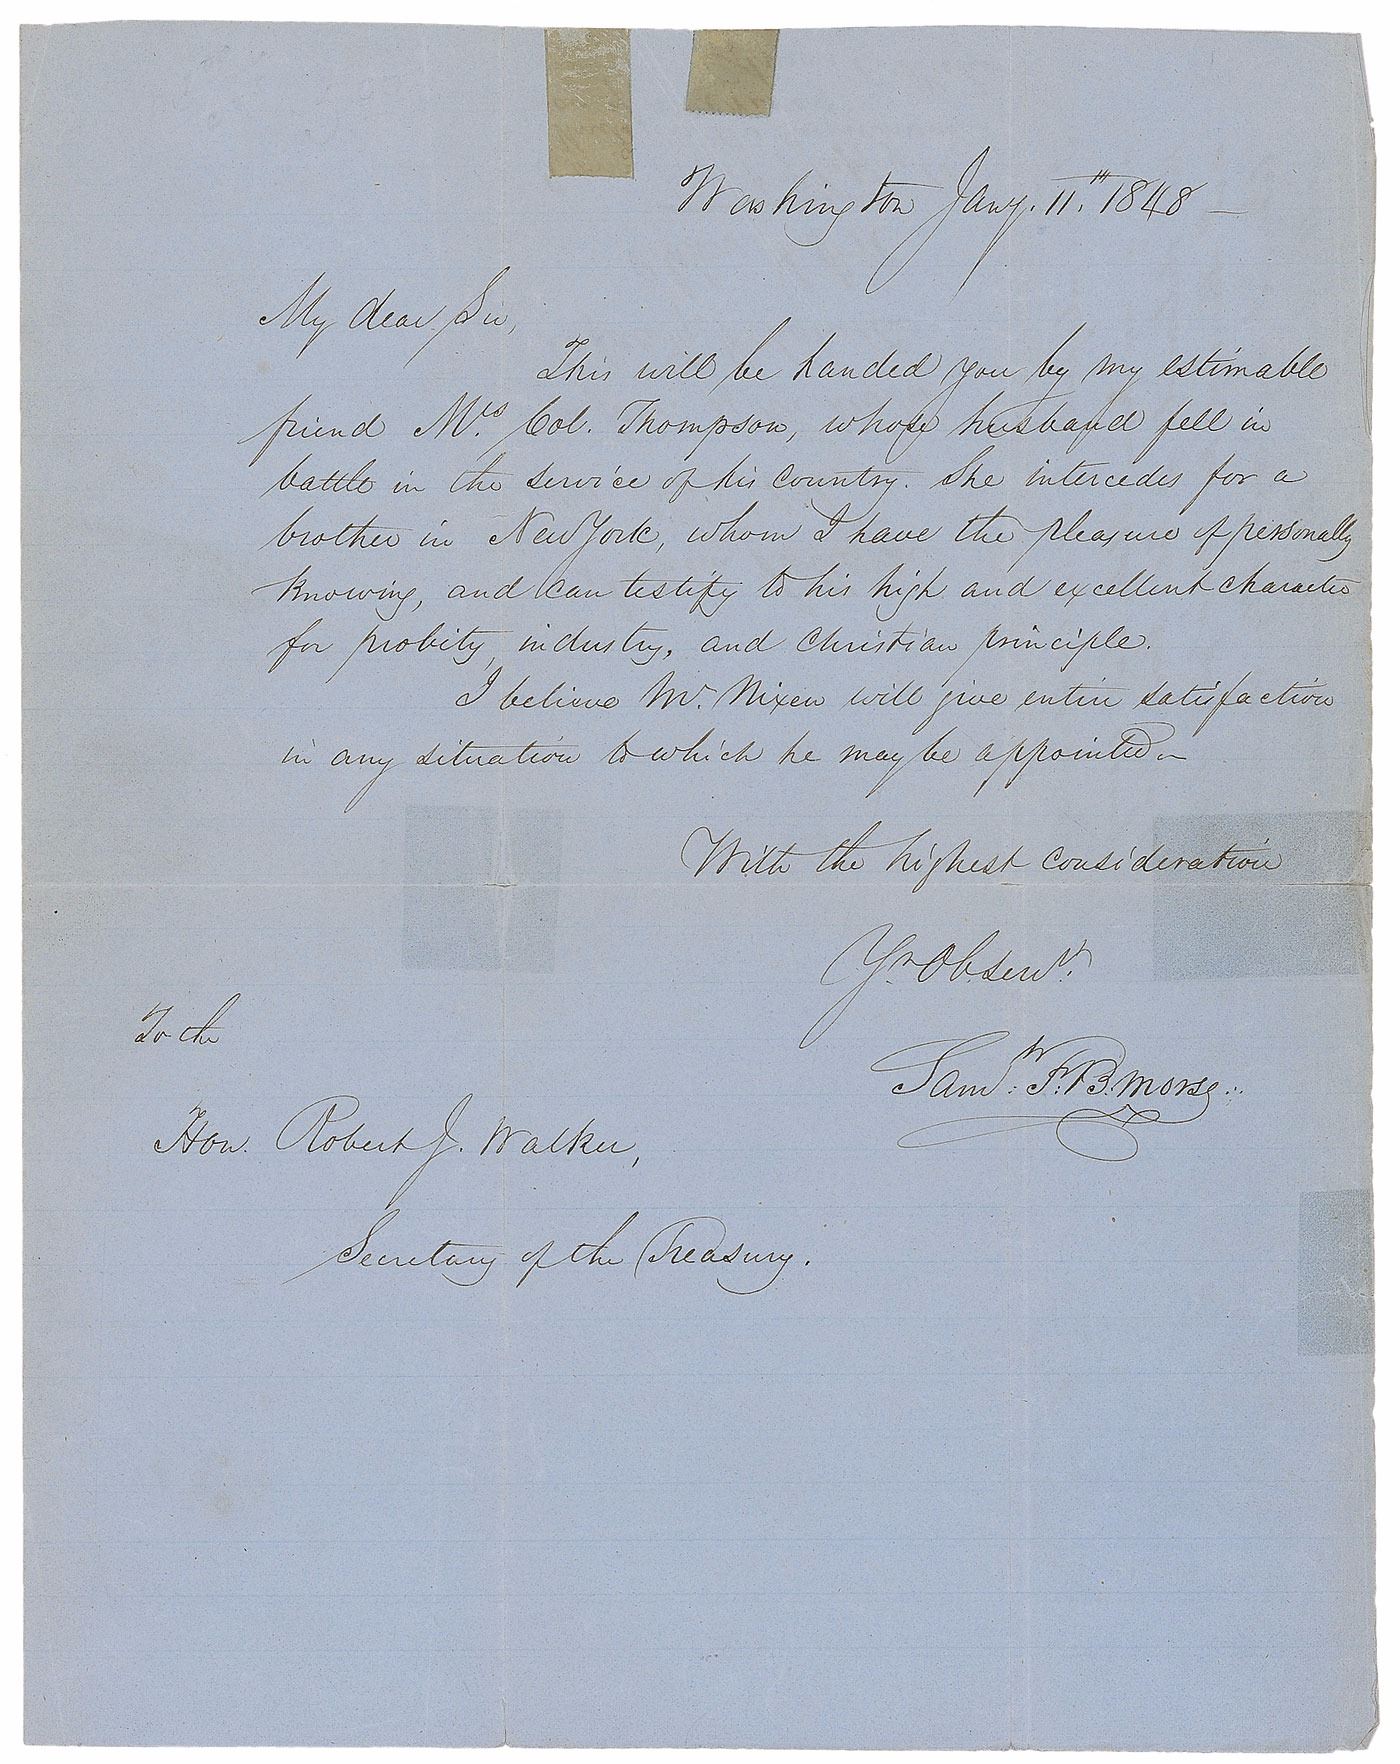 Washington Jany. 11.th 1848 —
My dear Sir,
This will be handed you by my estimable
friend Mrs. Col. Thompson, whose husband fell in
battle in the service of his country. She intercedes for a
brother in New York, whom I have the pleasure of personally
knowing, and can testify to his high and excellent character
for probity, industry, and Christian principle.
I believe Mr. Nixen will give entire satisfaction
in any situation to which he may be appointed —
With the highest consideration
Yr. Ob. servt.
Saml. F. B. Morse
To the
Hon. Robert J. Walker,
Secretary of the Treasury.